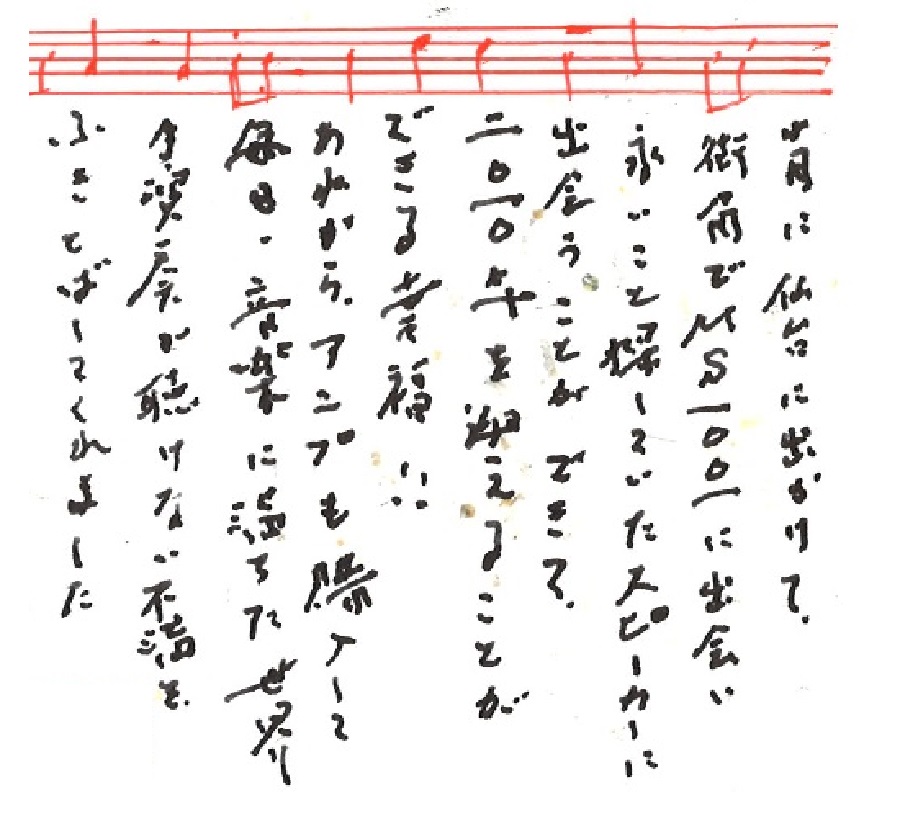 月に仙台に出かけて、
街角でMS一〇〇一に出会い
永いこと探していたスピーカーに
出会うことができて、
二〇一〇年を迎えることが
できる幸福!!
アンプも購入して
毎日、音楽に満ちた世界
演奏が聴けない不満を、
ふきとばしてくれました